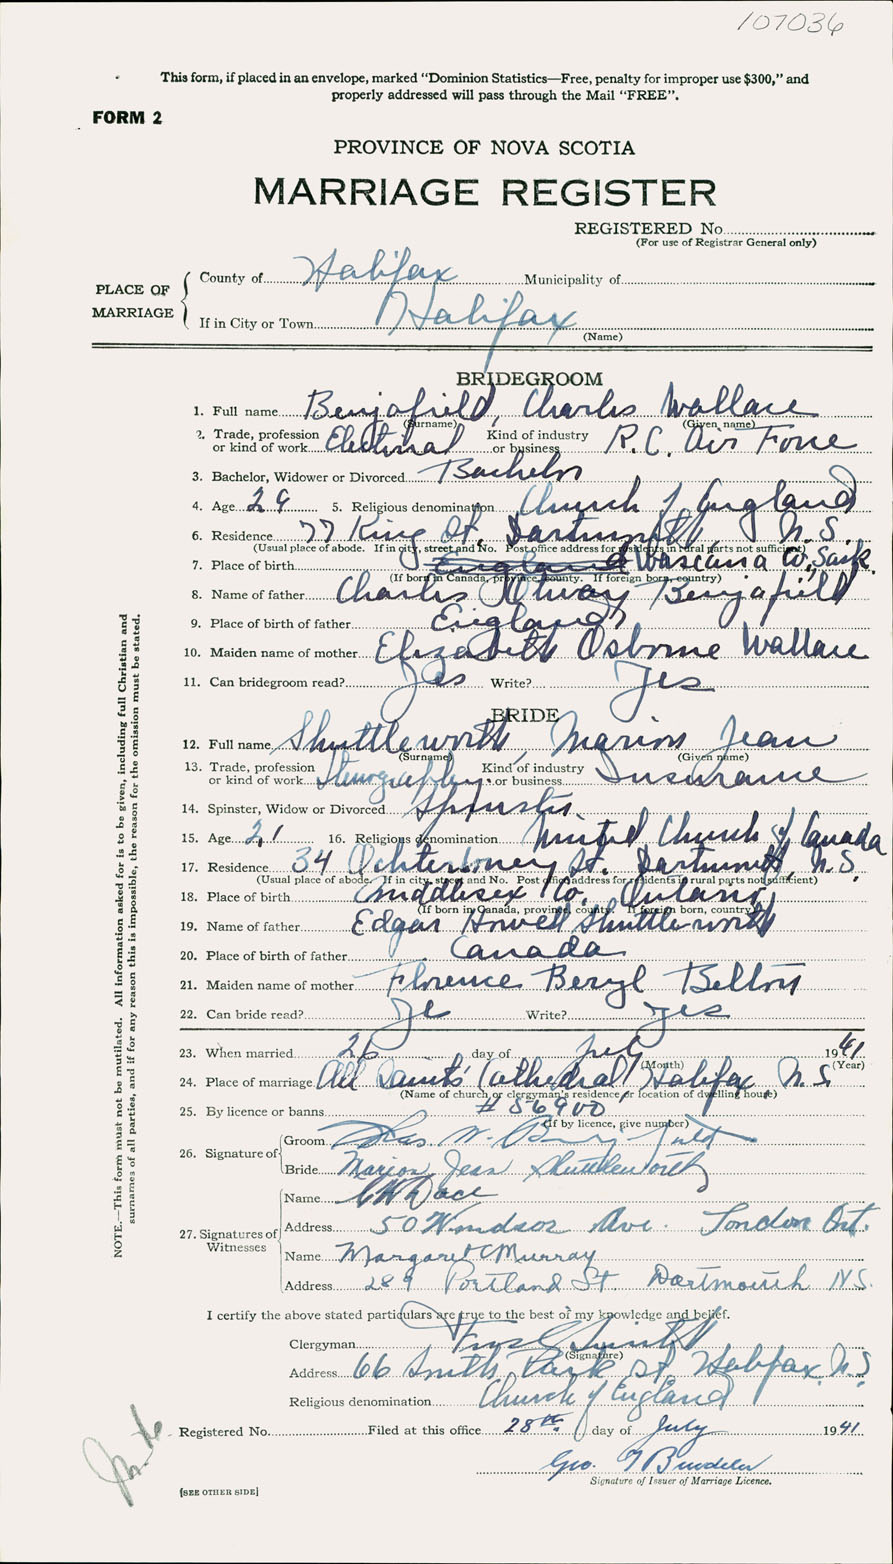 107036
This form, if placed in an envelope, marked “Dominion Statistics—Free, penalty for improper use $300,” and
properly addressed will pass through the Mail “FREE”.
FORM 2
PROVINCE OF NOVA SCOTIA
MARRIAGE REGISTER
REGISTERED No.
(For use of Registrar General only)
PLACE OF MARRIAGE
County of Halifax Municipality of
If in City or Town Halifax
(Name)
BRIDEGROOM
1. Full name Benjafield, Charles Wallace
(Surname) (Given name)
2. Trade, profession or kind of work Electrical Kind of industry or business R.C. Air Force
3. Bachelor, Widower or Divorced Bachelor
4. Age 29 5. Religious denomination Church of England
6. Residence 77 King St. Dartmouth, N.S.
(Usual place of abode. If in city, street and No. Post office address for residents in rural parts not sufficient)
7. Place of birth England Wascana Co, Sask.
(If born in Canada, province, county. If foreign born, country)
8. Name of father Charles Benjafield
9. Place of birth of father England
10. Maiden name of mother Elizabeth Osborne Wallace
11. Can bridegroom read? Yes Write? Yes
BRIDE
12. Full name Shuttleworth, Marion Jean
(Surname) (Given name)
13. Trade, profession or kind of work Stenographer Kind of industry or business Insurance
14. Spinster, Widow or Divorced Spinster
15. Age 21 16. Religious denomination United Church of Canada
17. Residence 34 Ochterloney St. Dartmouth, N.S.
(Usual place of abode. If in city, street and No. Post office address for residents in rural parts not sufficient)
18. Place of birth Middlesex Co. Ontario
(If born in Canada, province, county. If foreign born, country)
19. Name of father Edgar Howell Shuttleworth
20. Place of birth of father Canada
21. Maiden name of mother Florence Beryl Belton
22. Can bride read? Ye Write? Yes
23. When married 26 day of July 1941
(Month) (Year)
24. Place of marriage All Saints' Cathedral, Halifax N.S.
(Name of church or clergyman's residence or location of dwelling house)
25. By licence or banns # 56900
(If by licence, give number)
26. Signature of
Groom Chas. W. Benjafield
Bride Marion Jean Shuttleworth
27. Signatures of Witnesses
Name Dace
Address 50 Windsor Ave. London Ont.
Name Margaret C Murray
Address 289 Portland St. Dartmouth N.S.
I certify the above stated particulars are true to the best of my knowledge and belief.
Clergyman
(Signature)
Address 66 South Park St. Halifax N.S
Religious denomination Church of England
Registered No. Filed at this office 28th. day of July 1941
Geo.
Signature of Issuer of Marriage Licence.
[SEE OTHER SIDE]
NOTE.—This form must not be mutilated. All information asked for is to be given, including full Christian and
surnames of all parties, and if for any reason this is impossible, the reason for the omission must be stated.